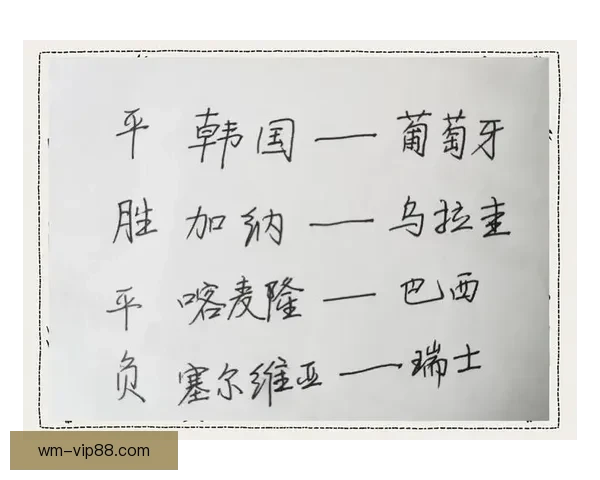 平 韩国 — 葡萄牙
胜 加纳 — 乌拉圭
平 喀麦隆 — 巴西
负 塞尔维亚 — 瑞士
wm-vip88.com